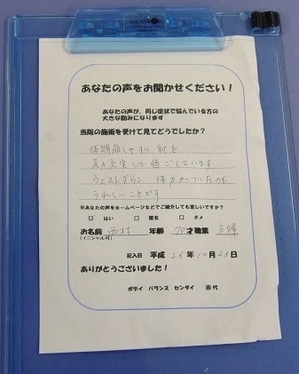 あなたの声をお聞かせください！
あなたの声が、同じ症状で悩んでいる方の
大きな励みになります
当院の施術を受けて見てどうでしたか？
体調崩しやすい秋を
元気に過ごしています
ウエストダウン 体力がついたのも
うれしいことです
※あなたの声をホームページなどでご紹介しても宜しいですか？
□ はい □ 匿名 □ ダメ
お名前 西村 年齢 才 職業 主婦
(イニシャル可)
記入日 平成 26年10月23日
ありがとうございました！
ボディ バランス センダイ 田代